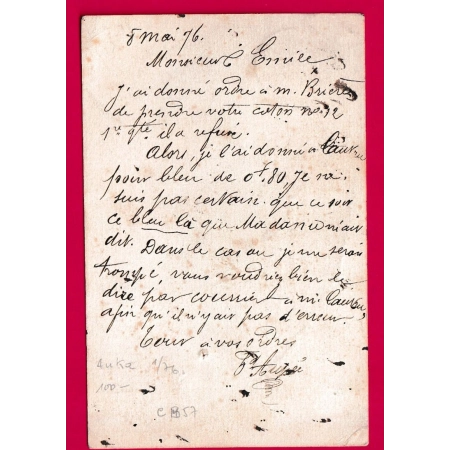 8 mai 76.
Monsieur Emile
J'ai donné ordre à m. Brière
de prendre votre coton no 12
1re qté il a refusé.
Alors, je l'ai donné à
pour bleu de 0f.80, Je ne
suis pas certaine que ce soit
ce bleu là que Madame m'ait
dit. Dans le cas ou je me serais
trompé, vous voudriez bien le
dire par courrier à m.
afin qu'il n'y ait pas d'erreur.
Tour à vos ordres
Auka. 1/76.
100-